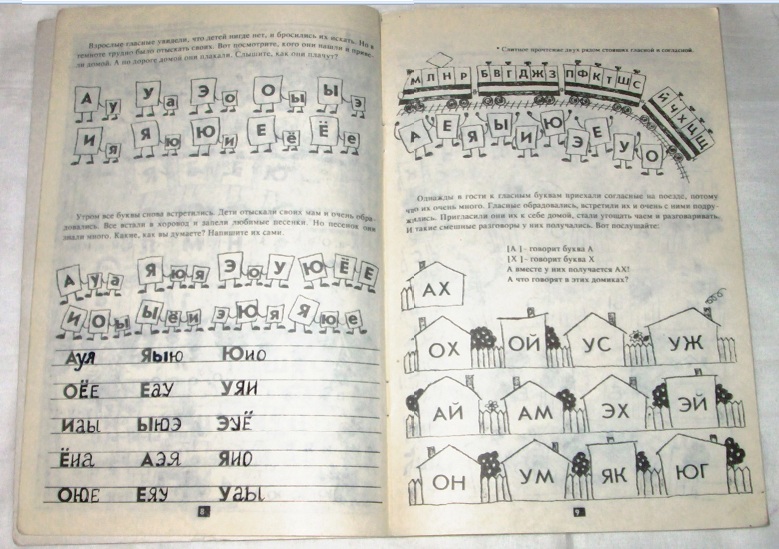 Взрослые гласные увидели, что детей нигде нет, и бросились их искать. Но в
темноте трудно было отыскать своих. Вот посмотрите, кого они нашли и приве-
ли домой. А по дороге домой они плакали. Слышите, как они плачут?
А у У а Э о О ы Ы э
И я Я ю Ю и Е ё Ё е
Утром все буквы снова встретились. Дети отыскали своих мам и очень обра-
довались. Все встали в хоровод и запели любимые песенки. Но песенок они
знали много. Какие, как вы думаете? Напишите их сами.
А у а Я ю я Э о У Ю Ё Е
И О ы Ы ё и э Ю я Я ю е
Ауя Яыю Юио
ОЁЕ Еау Уяи
Иаы Ыюэ ЭуЁ
Ёиа Аэя Яио
ОЮЕ Еяу Уаы
8
* Слитное прочтение двух рядом стоящих гласной и согласной.
М Л Н Р Б В Г Д Ж З П Ф К Т Ш С Й Ч Х Ц Щ
А Е Я Ы И Ю Э Ё У О
Однажды в гости к гласным буквам приехали согласные на поезде, потому
что их очень много. Гласные обрадовались, встретили их и очень с ними подру-
жились. Пригласили они их к себе домой, стали угощать чаем и разговаривать.
И такие смешные разговоры у них получались. Вот послушайте:
[А ] - говорит буква А
[Х ] - говорит буква Х
А вместе у них получается АХ!
А что говорят в этих домиках?
АХ
ОХ ОЙ УС УЖ
АЙ АМ ЭХ ЭЙ
ОН УМ ЯК ЮГ
9